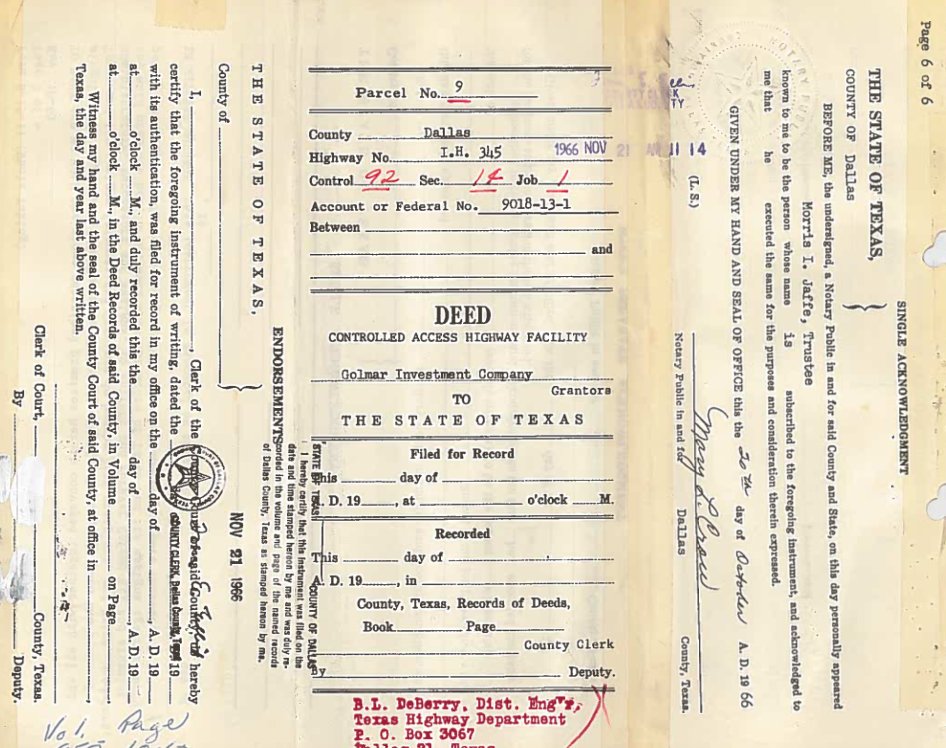 Page 6 of 6
SINGLE ACKNOWLEDGMENT
THE STATE OF TEXAS,
COUNTY OF Dallas
BEFORE ME, the undersigned, a Notary Public in and for said County and State, on this day personally appeared
Morris I. Jaffe, Trustee
known to me to be the person whose name is subscribed to the foregoing instrument, and acknowledged to
me that he executed the same for the purposes and consideration therein expressed.
GIVEN UNDER MY HAND AND SEAL OF OFFICE this the 20th day of October A. D. 1966
(L. S.)
Mary L. Crow
Notary Public in and for Dallas County, Texas.
Parcel No. 9
County Dallas
Highway No. I.H. 345
1966 NOV 21 AM 11 14
Control 92 Sec. 14 Job 1
Account or Federal No. 9018-13-1
Between
and
DEED
CONTROLLED ACCESS HIGHWAY FACILITY
Golmar Investment Company
Grantors
TO
THE STATE OF TEXAS
Filed for Record
This day of
A. D. 19, at o'clock M.
Recorded
This day of
A. D. 19, in
County, Texas, Records of Deeds,
Book Page
County Clerk
By Deputy.
B.L. DeBerry, Dist. Eng'r,
Texas Highway Department
P. O. Box 3067
Dallas 21, Texas
STATE OF TEXAS COUNTY OF DALLAS
I hereby certify that this instrument was filed on the
date and time stamped hereon by me and was duly re-
corded in the volume and page of the named records
of Dallas County, Texas as stamped hereon by me.
NOV 21 1966
COUNTY CLERK, Dallas County, Texas
ENDORSEMENTS
THE STATE OF TEXAS,
County of
I, , Clerk of the County Court of said County, do hereby
certify that the foregoing instrument of writing, dated the day of , A. D. 19
with its authentication, was filed for record in my office on the day of , A. D. 19
at o'clock M., and duly recorded this the day of , A. D. 19
at o'clock M., in the Deed Records of said County, in Volume on Page
Witness my hand and the seal of the County Court of said County, at office in
Texas, the day and year last above written.
Clerk of Court, County, Texas.
By Deputy.
Vol. Page